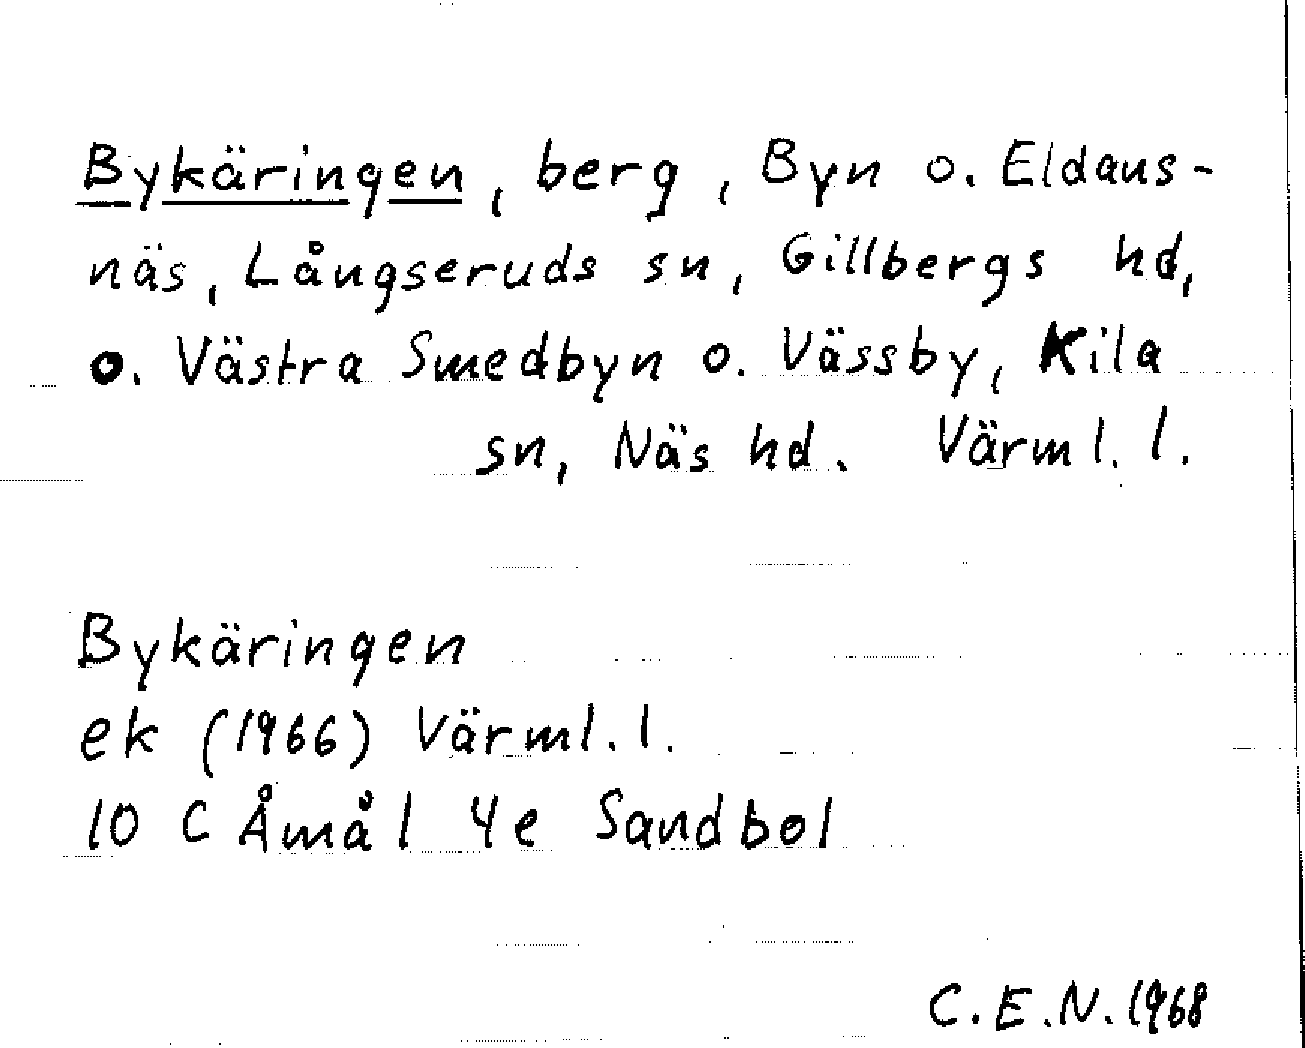 Bykäringen, berg, Byn o. Eldans-
näs, Långseruds sn, Gillbergs hd,
o. Västra Smedbyn o. Vässby, Kila
sn, Näs hd. Värml. l.
Bykäringen
ek (1966) Värml. l.
10 C Åmål 4e Sandbol
C.E.N. 1968